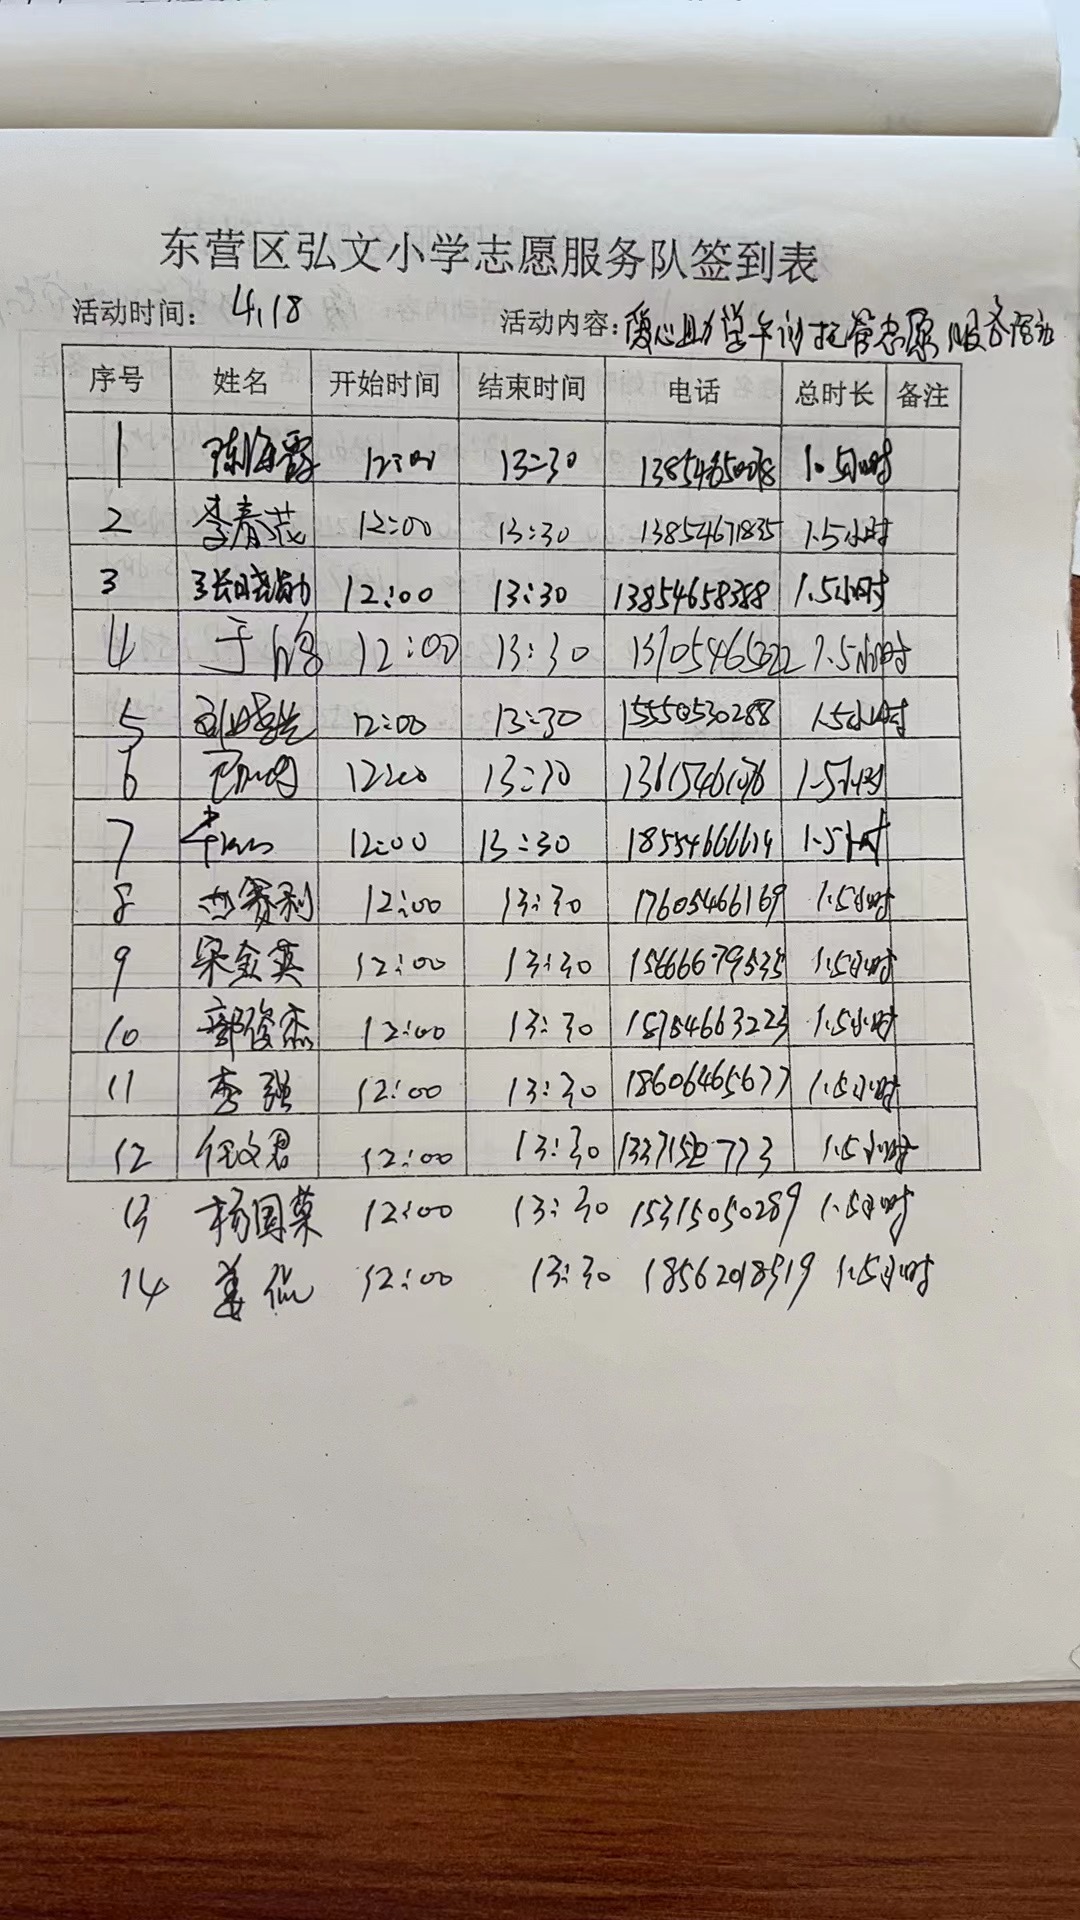 东营区弘文小学志愿服务队签到表
活动时间: 4.18 活动内容: 爱心助学午间托管志愿服务活动
序号 姓名 开始时间 结束时间 电话 总时长 备注
1 陈海霞 12:00 13:30 1.5小时
2 李春花 12:00 13:30 13854671835 1.5小时
3 12:00 13:30 13854658388 1.5小时
4 于 12:00 13:30 13705465022 1.5小时
5 12:00 13:30 15550530288 1.5小时
6 12:00 13:30 1.5小时
7 12:00 13:30 18554666614 1.5小时
8 12:00 13:30 17605466169 1.5小时
9 宋金英 12:00 13:30 15666679535 1.5小时
10 郭俊杰 12:00 13:30 1.5小时
11 李强 12:00 13:30 18606465677 1.5小时
12 任文君 12:00 13:30 1.5小时
13 杨国菊 12:00 13:30 15315050289 1.5小时
14 姜 12:00 13:30 18562018919 1.5小时